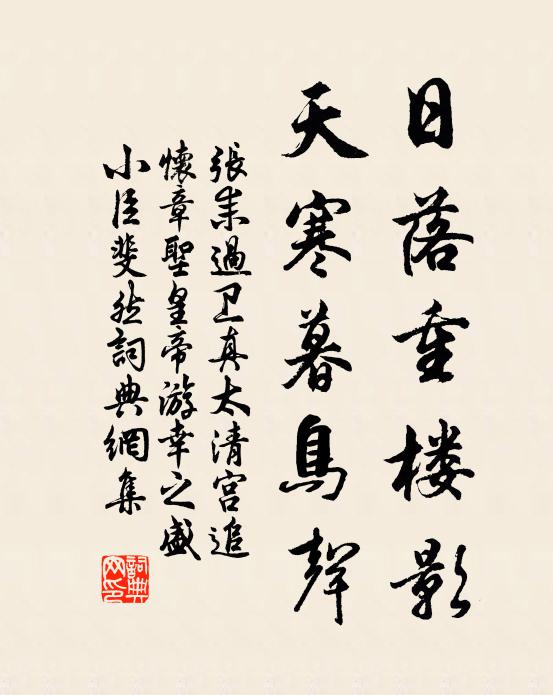 日落重楼影
天寒暮鳥聲
張耒過卫真太清宫追
懷章聖皇帝游幸之盛
小臣斐然詞典網集
詞典网印